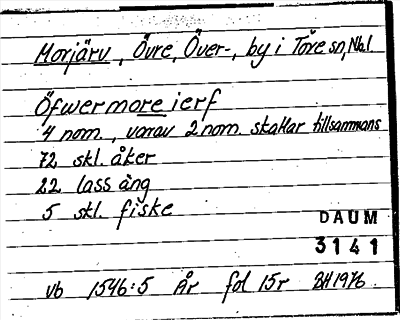 Morjärv, Övre, Över-, by i Töre sn, Nbl.
Öfwermoreierf
4 nom., varav 2 nom. skattar tillsammans
72 skl. åker
22 lass äng
5 skl. fiske
DAUM
3141
vb 1546:5 År fol 15r BH 1976